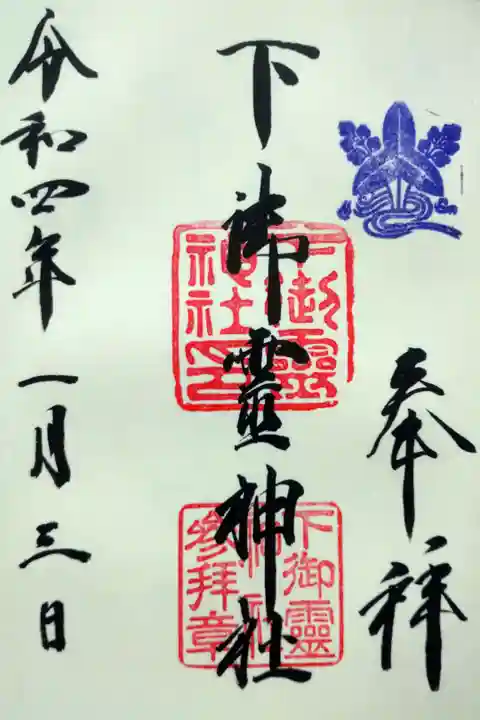 奉拝
下御靈神社
下御靈神社印
下御靈神社参拝章
令和四年一月三日